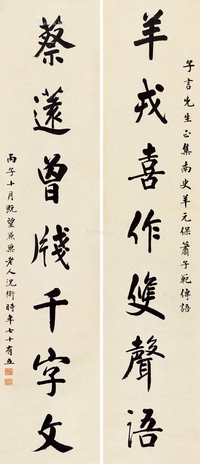 子言先生正集南史羊元保蕭子範傳語
羊戎喜作雙聲語
蔡薳曾牋千字文
丙子十月既望采巢老人沈衛時年七十有五